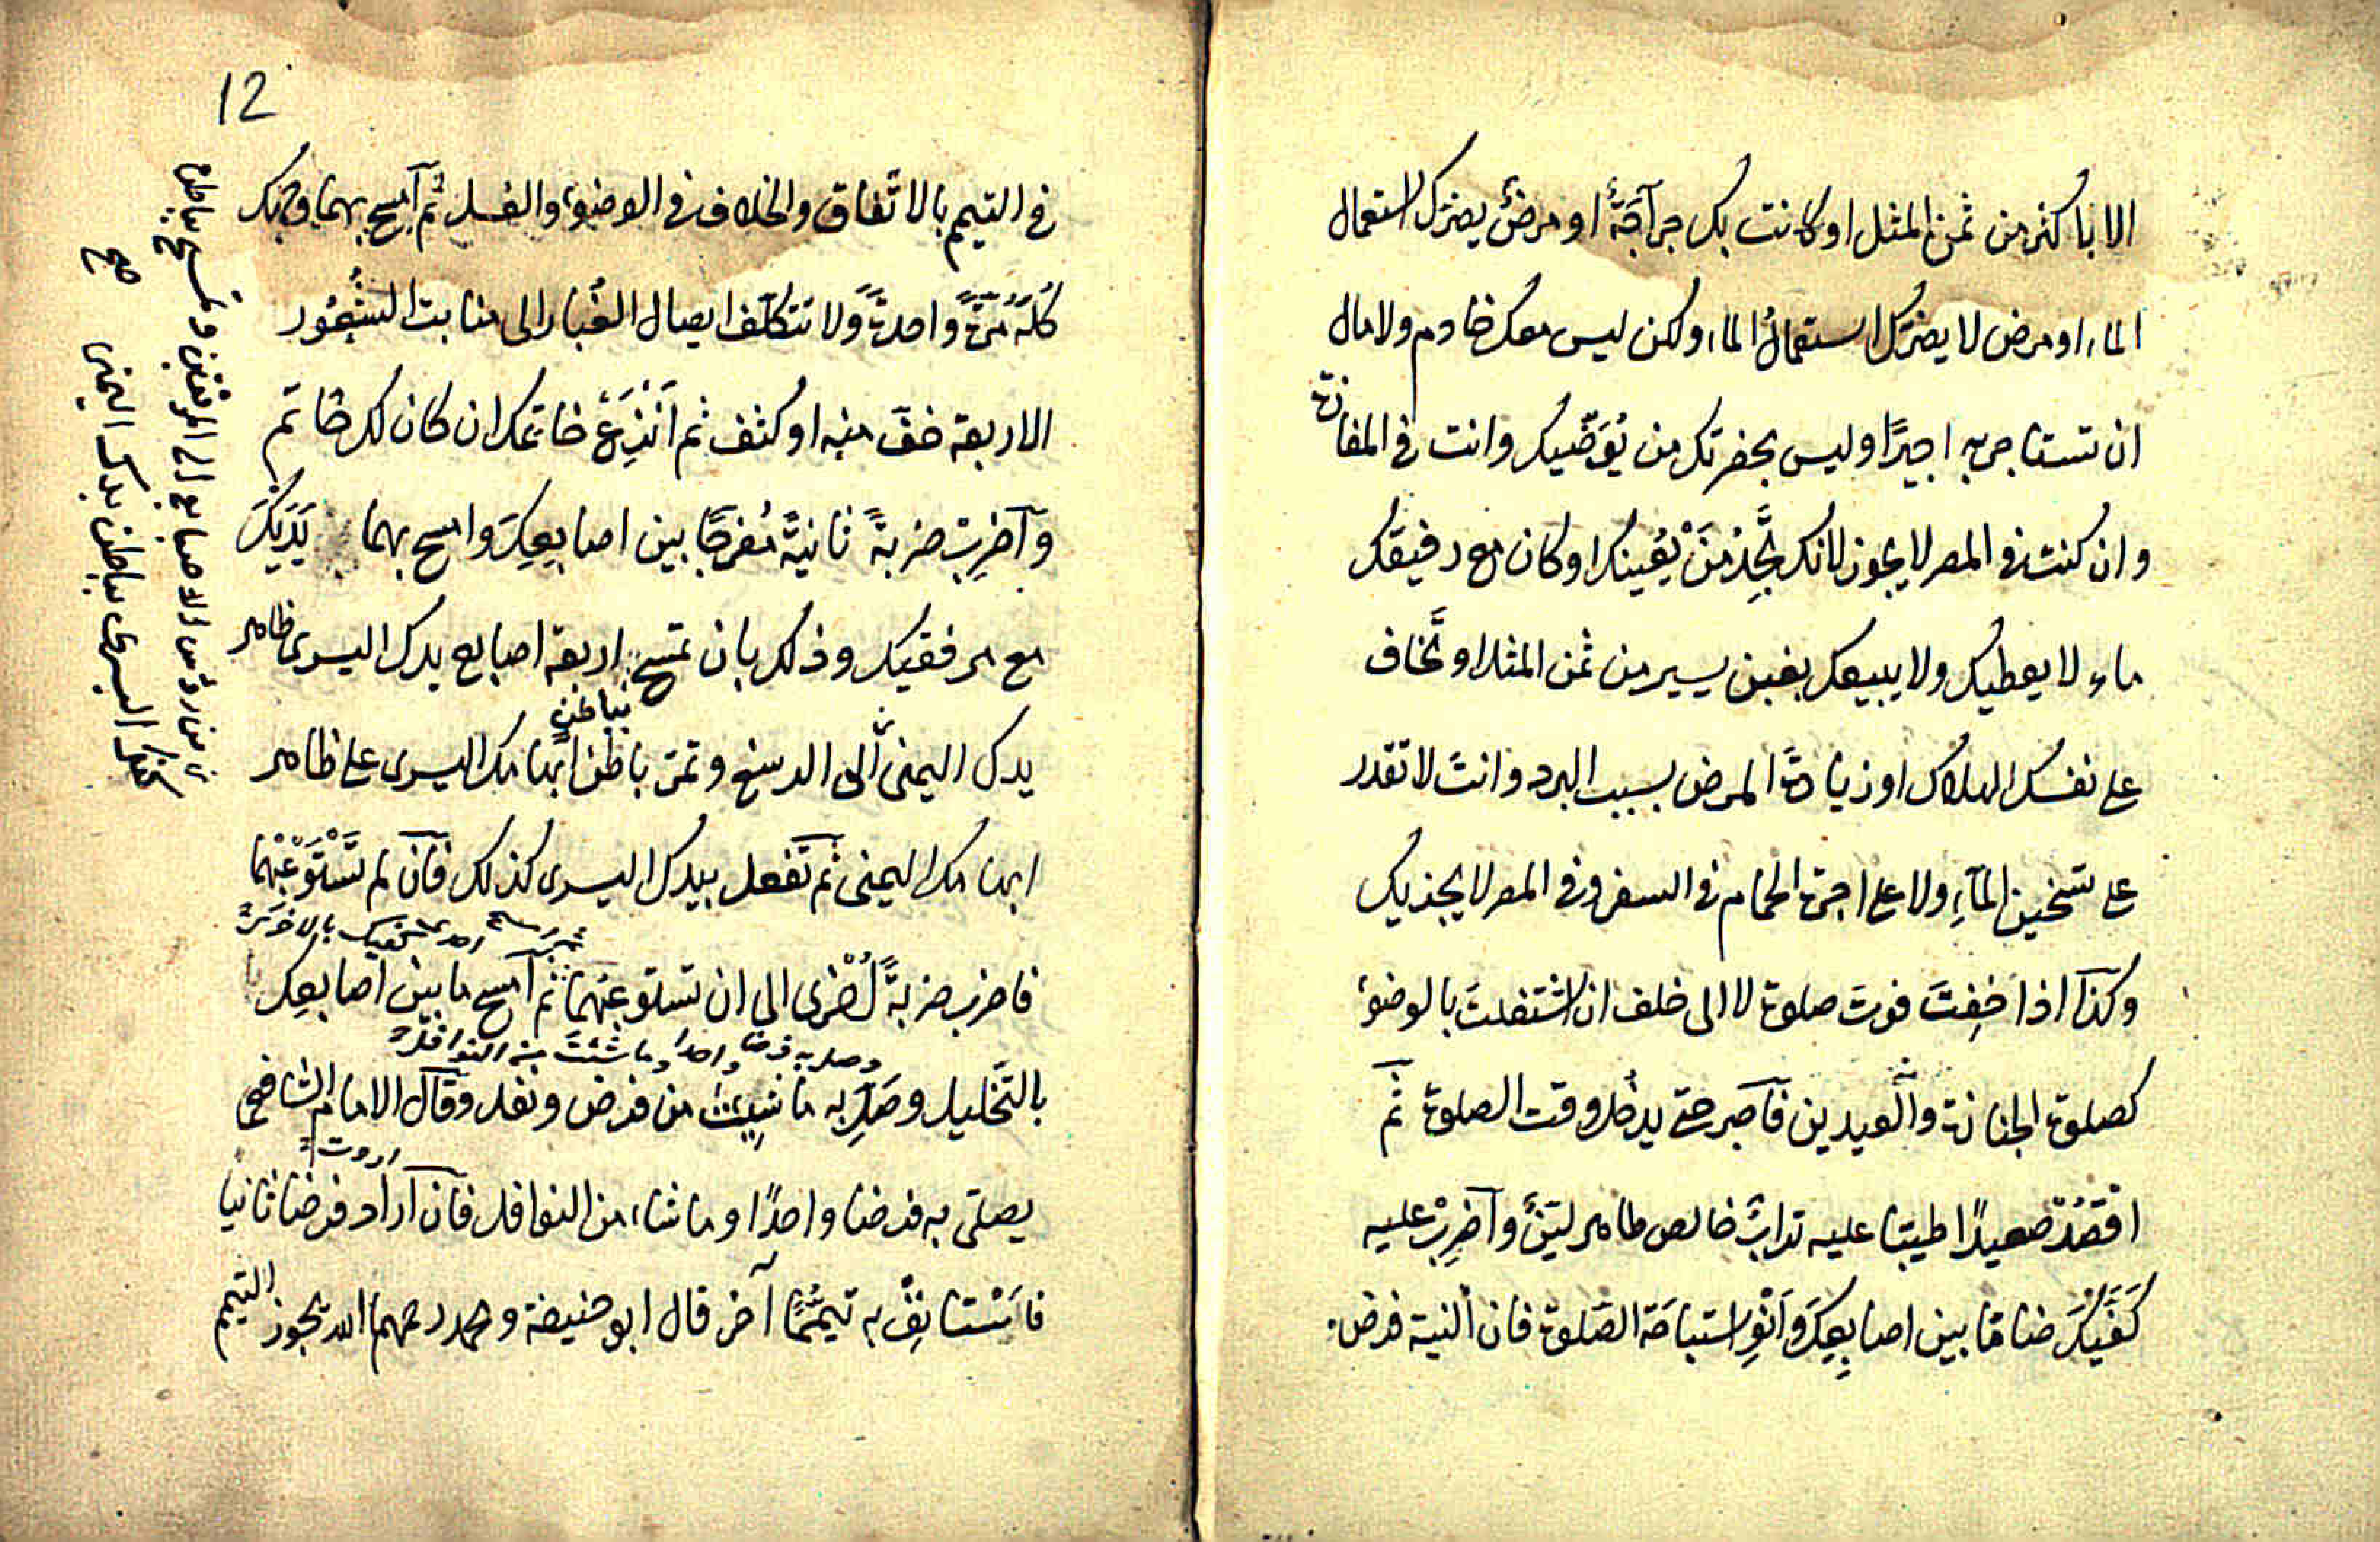 الا باكثر من ثمن المثل او كانت بك جراحَةٌ او مرضٌ يضرك استعمال
الماء او مرض لا يضرك استعمالُ الماء ولكن ليس معك خادم ولا مال
ان تستاجر به اجيرًا وليس بحضرتك من يُوَضّيك وانت في المفازة
وان كنت في المصر لا يجوز لانك تَجِدُ مَنْ يُعينك او كان مع رفيقك
ماء لا يعطيك ولا يبيعك بغبن يسير من ثمن المثل او تَخاف
على نفسك الهلاك او زيادة المرض بسبب البرد وانت لا تقدر
على تسخين الماءِ ولا على اجرة الحمام في السفر وفي المصر لا يجزيك
وكذا اذا خِفتَ فوت صلوة لا الى خلف ان اشتغلتَ بالوضوء
كصلوة الجنازة والعيدين فاصبر حتى يدخل وقت الصلوة ثم
اقصُدْ صعيدًا طيبا عليه ترابٌ خالص طاهر ليّنٌ واضرِبْ عليه
كَفَّيْكَ ضامّا بين اصابِعِكَ وَانْوِ استباحَة الصّلوة فان النية فرض
12
في التيمم بالاتّفاق والخلاف في الوضوء والغسل ثم امسح بهما وجهك
كُلَّهُ مَرَّةً واحدةً وَلا تتكلّف ايصال الغُبار الى منابت الشُّعُور
الاربعة خفّ منبه او كثف ثم انْزِعْ خاتمك ان كان لك خاتم
واضرِبْ ضربةً ثانيةً مُفرجًا بين اصابِعِكَ وامسح بهما يَدَيْكَ
مع مرفقيك وذلك بان تمسح اربعة اصابع يدك اليسرى ظاهر
بباطن
يدك اليمنى الى الرسغ وتمرّ باطن ابهامك اليسرى على ظاهر
ابهامك اليمنى ثم تفعل بيدك اليسرى كذلك فان لم تَسْتَوْعِبْهُما
احدى كفيك بالاخرى
فاضرب ضربةً اُخْرى الى ان تستوعبَهُما ثم امسح ما بين اصابعِك
وصل به فرضا واحدا وما شئت من النوافل
بالتّخليل وصَلِّ به ما شِئت من فرض ونفل وقال الامام الشافعي
اردت
يصلّى به فرضا واحدًا وما شاء من النوافل فان اراد فرضا ثانيا
فاسْتانِفْ به تيمُّمًا آخر قال ابو حنيفة ومحمد رحمهما الله يجوز التيمم
من رؤس الاصابع الى المرفقين وتمسح بباطن
كفك اليسرى باطن يدك اليمنى
صح